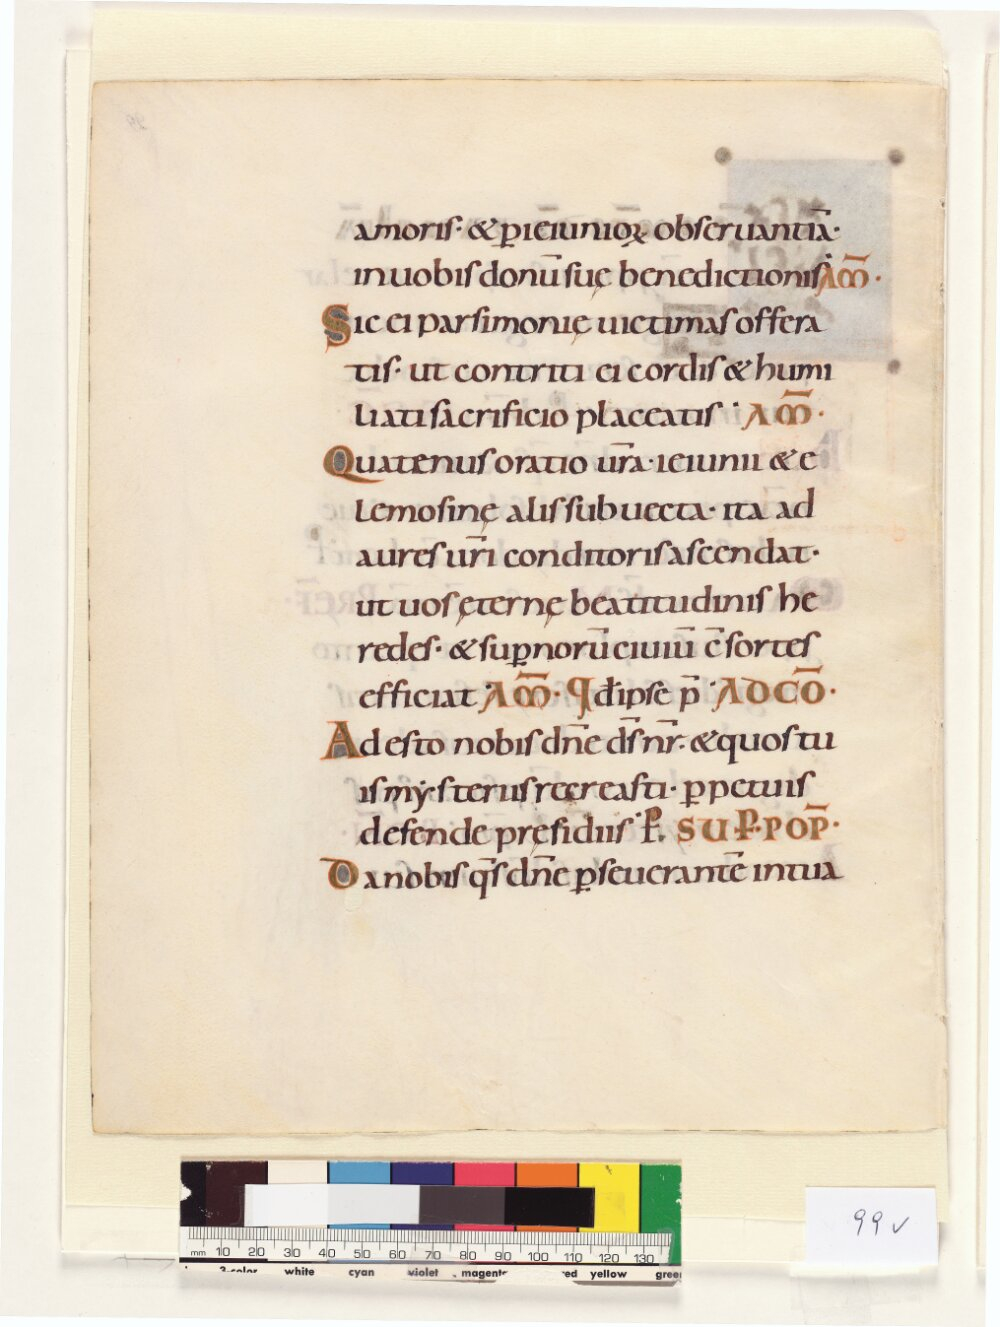 amoris· & p̄ ieiunioꝝ obseruantiā·
in uobis donū suę benedictionis AM̄·
Sic ei parsimonię uictimas offera
tis· ut contriti ei cordis & humi
liati sacrificio placeatis· AM̄·
Quatenus oratio ur̄a· ieiunii & e
lemosinę alis subuecta· ita ad
aures ur̄i conditoris ascendat·
ut uos ęternę beatitudinis he
redes· & suꝑnorū ciuiū c̄sortes
efficiat· AM̄· Qd̄ ipse p̄· AD CŌ·
Adesto nobis dn̄e ds̄ nr̄· & quos tu
is mẏsteriis recreasti· ꝑpetuis
defende pręsidiis· P̄. SUP̄ POP̄·
Da nobis qs̄ dn̄e ꝑseuerantē in tua
99v
mm 10 20 30 40 50 60 70 80 90 100 110 120 130
3-color white cyan violet magenta red yellow green